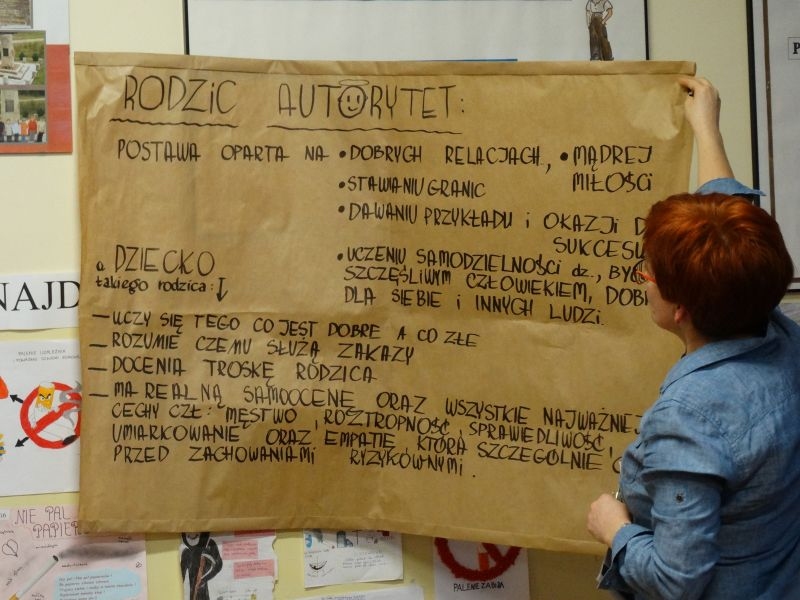 RODZIC AUTORYTET:
POSTAWA OPARTA NA • DOBRYCH RELACJACH, • MĄDREJ
MIŁOŚCI
• STAWANIU GRANIC
• DAWANIU PRZYKŁADU i OKAZJI D
SUKCESU
• UCZENIU SAMODZIELNOŚCI dz., BYĆ
SZCZĘŚLIWYM CZŁOWIEKIEM, DOBR
DLA SIEBIE i INNYCH LUDZI.
DZIECKO
takiego rodzica:
— UCZY SIĘ TEGO CO JEST DOBRE A CO ZŁE
— ROZUMIE CZEMU SŁUŻĄ ZAKAZY
— DOCENIA TROSKĘ RODZICA
— MA REALNĄ SAMOOCENĘ ORAZ WSZYSTKIE NAJWAŻNIEJ
CECHY CZŁ: MĘSTWO, ROZTROPNOŚĆ, SPRAWIEDLIWOŚĆ,
UMIARKOWANIE ORAZ EMPATIĘ, KTÓRA SZCZEGÓLNIE
PRZED ZACHOWANIAMI RYZYKOWNYMI.
NAJD
NIE PAL
PAPIER
PALENIE ZABIJA